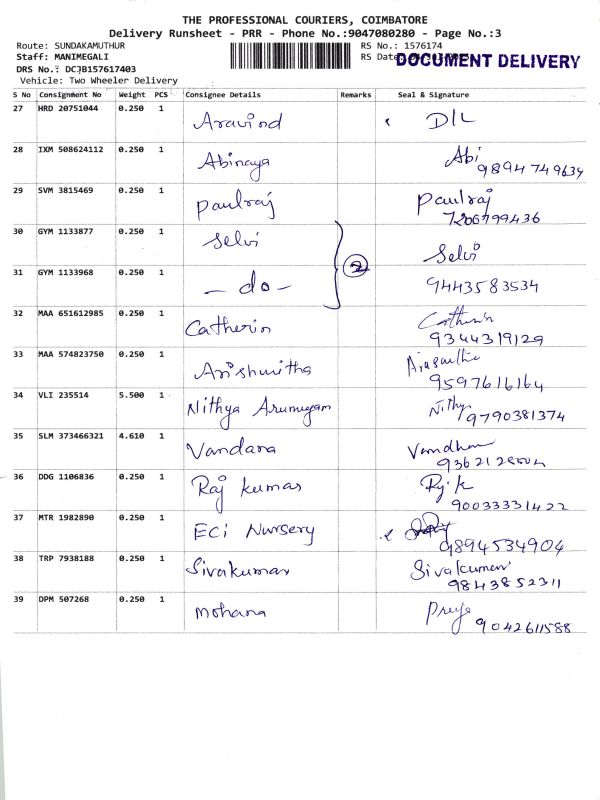 THE PROFESSIONAL COURIERS, COIMBATORE
Delivery Runsheet - PRR - Phone No.:9047080280 - Page No.:3
Route: SUNDAKAMUTHUR RS No.: 1576174
Staff: MANIMEGALI RS Date: DOCUMENT DELIVERY
DRS No.: DCJB157617403
Vehicle: Two Wheeler Delivery
S No Consignment No Weight PCS Consignee Details Remarks Seal & Signature
27 HRD 20751044 0.250 1 Aravind D/L
28 IXM 508624112 0.250 1 Abinaya Abi
9894749634
29 SVM 3815469 0.250 1 Paulraj Paulraj
7206799436
30 GYM 1133877 0.250 1 Selvi Selvi
31 GYM 1133968 0.250 1 - do - 2 9443583534
32 MAA 651612985 0.250 1 Catherin Catherin
9344319129
33 MAA 574823750 0.250 1
9597616164
34 VLI 235514 5.500 1 Nithya Arumugam Nithy
9790381374
35 SLM 373466321 4.610 1 Vandana Vandhana
36 DDG 1106836 0.250 1 Raj kumar Raj k
90033331422
37 MTR 1982890 0.250 1 ECI Nursery
9894534904
38 TRP 7938188 0.250 1 Sivakumar Sivakumar
9843852311
39 DPM 507268 0.250 1 Mohana Priya
9042611588